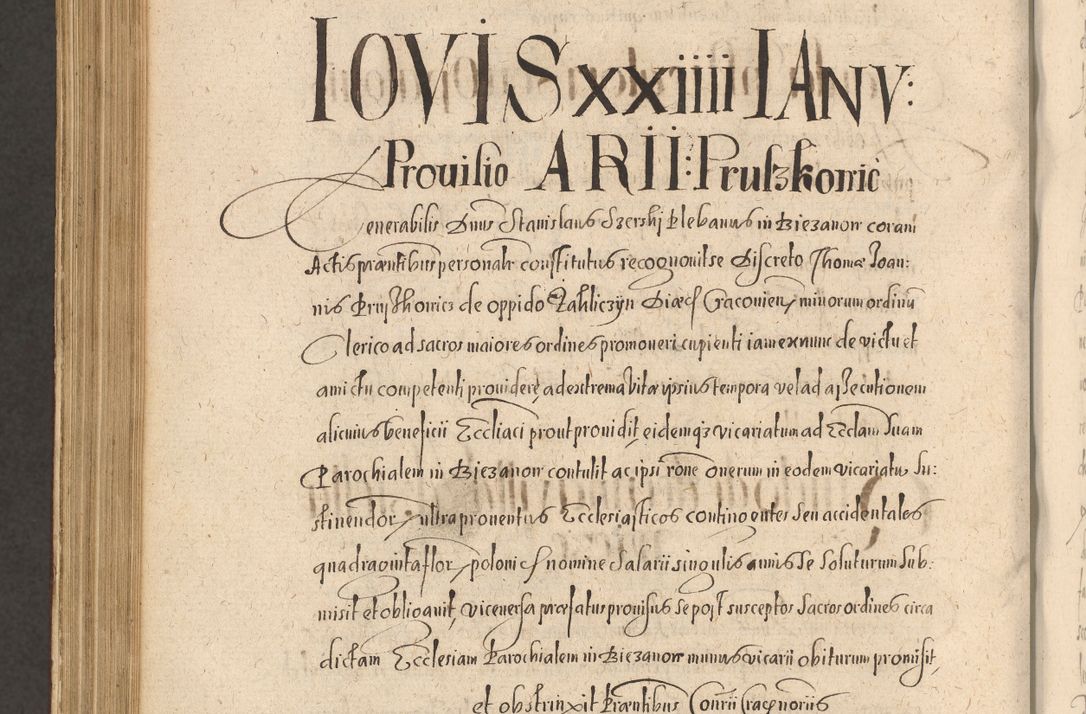 IOVIS XXIIII IANV:
ARII:
Prouisio Pruszkowic
Venerabilis Dnus Stanislaus Szerskj Plebanus in Biezanow coram
Actis praentibus personalr constitutus recognouit se discreto Thomae Ioan:
nis Pruszkowicz de oppido Zakliczyn Diaec Craconien, minorum ordinu
Clerico ad sacros maiores ordines promoueri cupienti iam ex nunc de victu et
amictu competenti prouidere ad extrema vitae ipsius tempora vel ad assecutionem
alicuius beneficii Eccliaci prout prouidit, eidemq3 vicariatum ad Ecclam suam
Parochialem in Biezanow contulit ac ipsi rone onerum in eodem vicariatu su:
stinendor, ultra prouentus Ecclesiasticos contingentes seu accidentales
quadraginta flor, polonic nomine salarii singulis annis se soluturum sub:
misit et obligauit, vice versa praefatus prouisus se post susceptos sacros ordines circa
dictam Ecclesiam Parochialem in Biezanow munus vicarii obiturum promisit,
et obstrinxit Praentibus